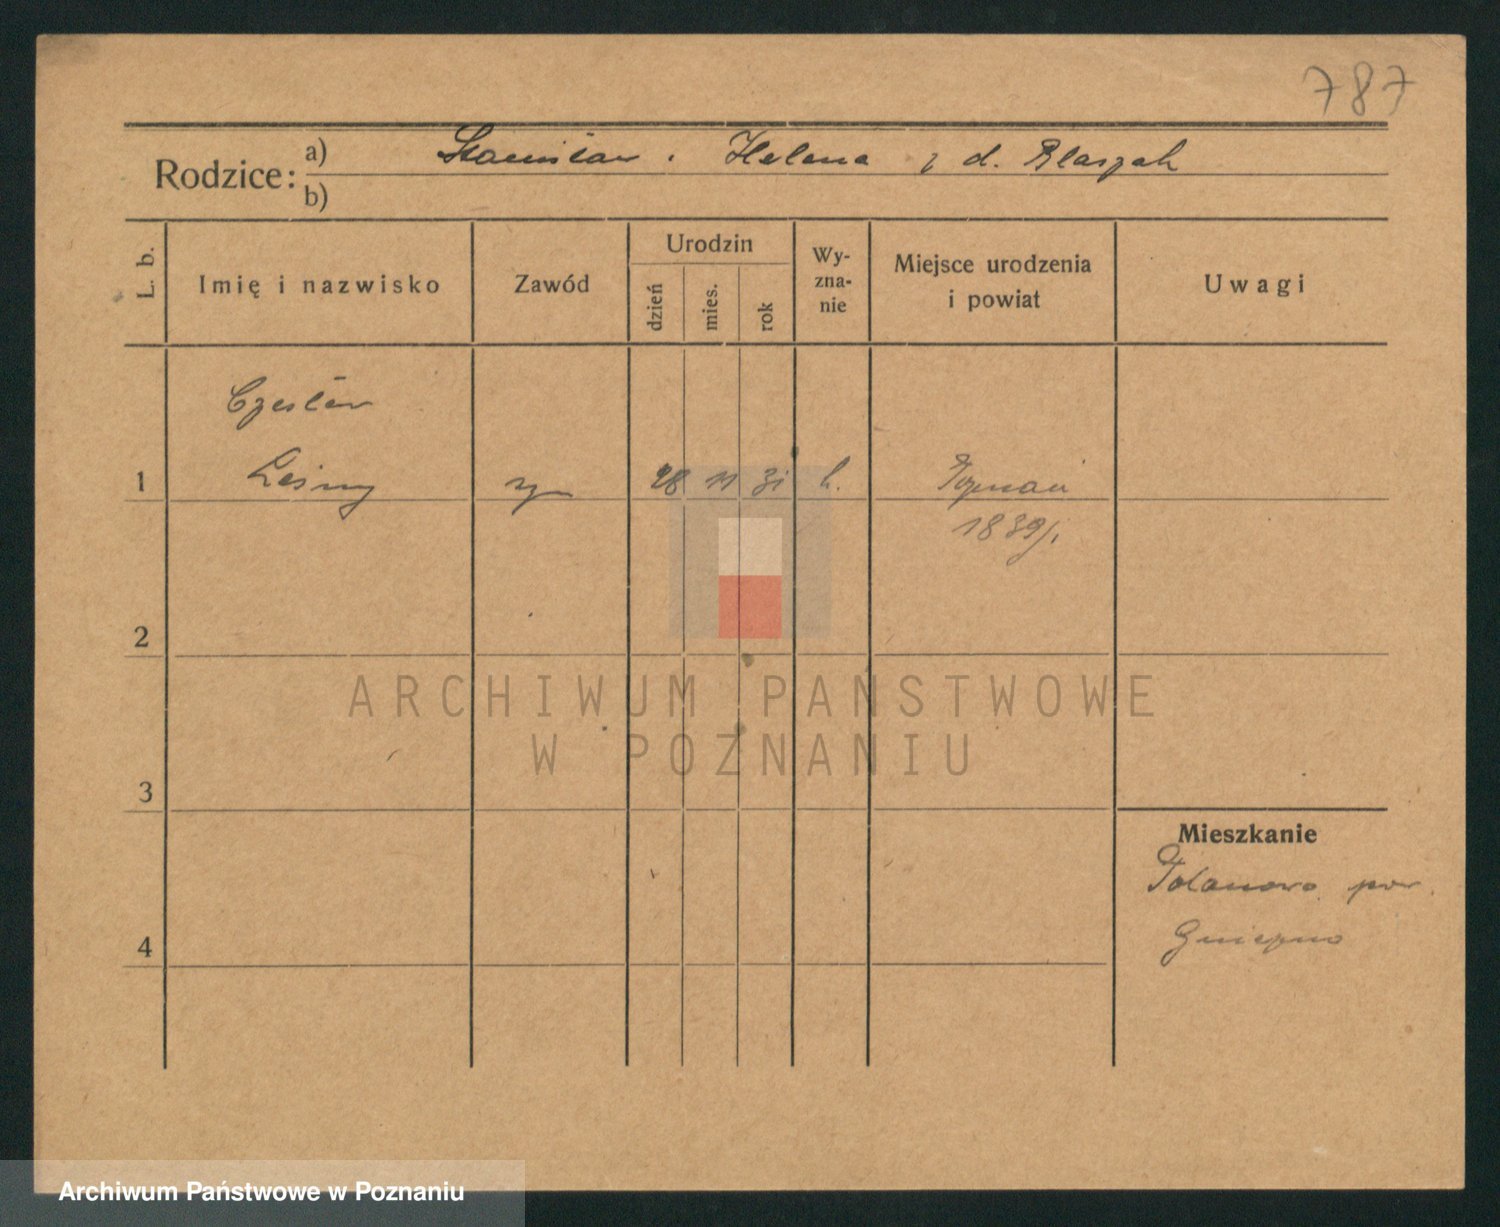 787
Rodzice: a) Stanisław i Helena z d. Blaszak
b)
L. b.
Imię i nazwisko
Zawód
Urodzin
dzień
mies.
rok
Wy-
zna-
nie
Miejsce urodzenia
i powiat
Uwagi
Czesław
1 Leśny syn 28 11 31 k. Poznań
1839/i
2
ARCHIWUM PAŃSTWOWE
W POZNANIU
3
Mieszkanie
Polanowo pow.
Gniezno
4
Archiwum Państwowe w Poznaniu